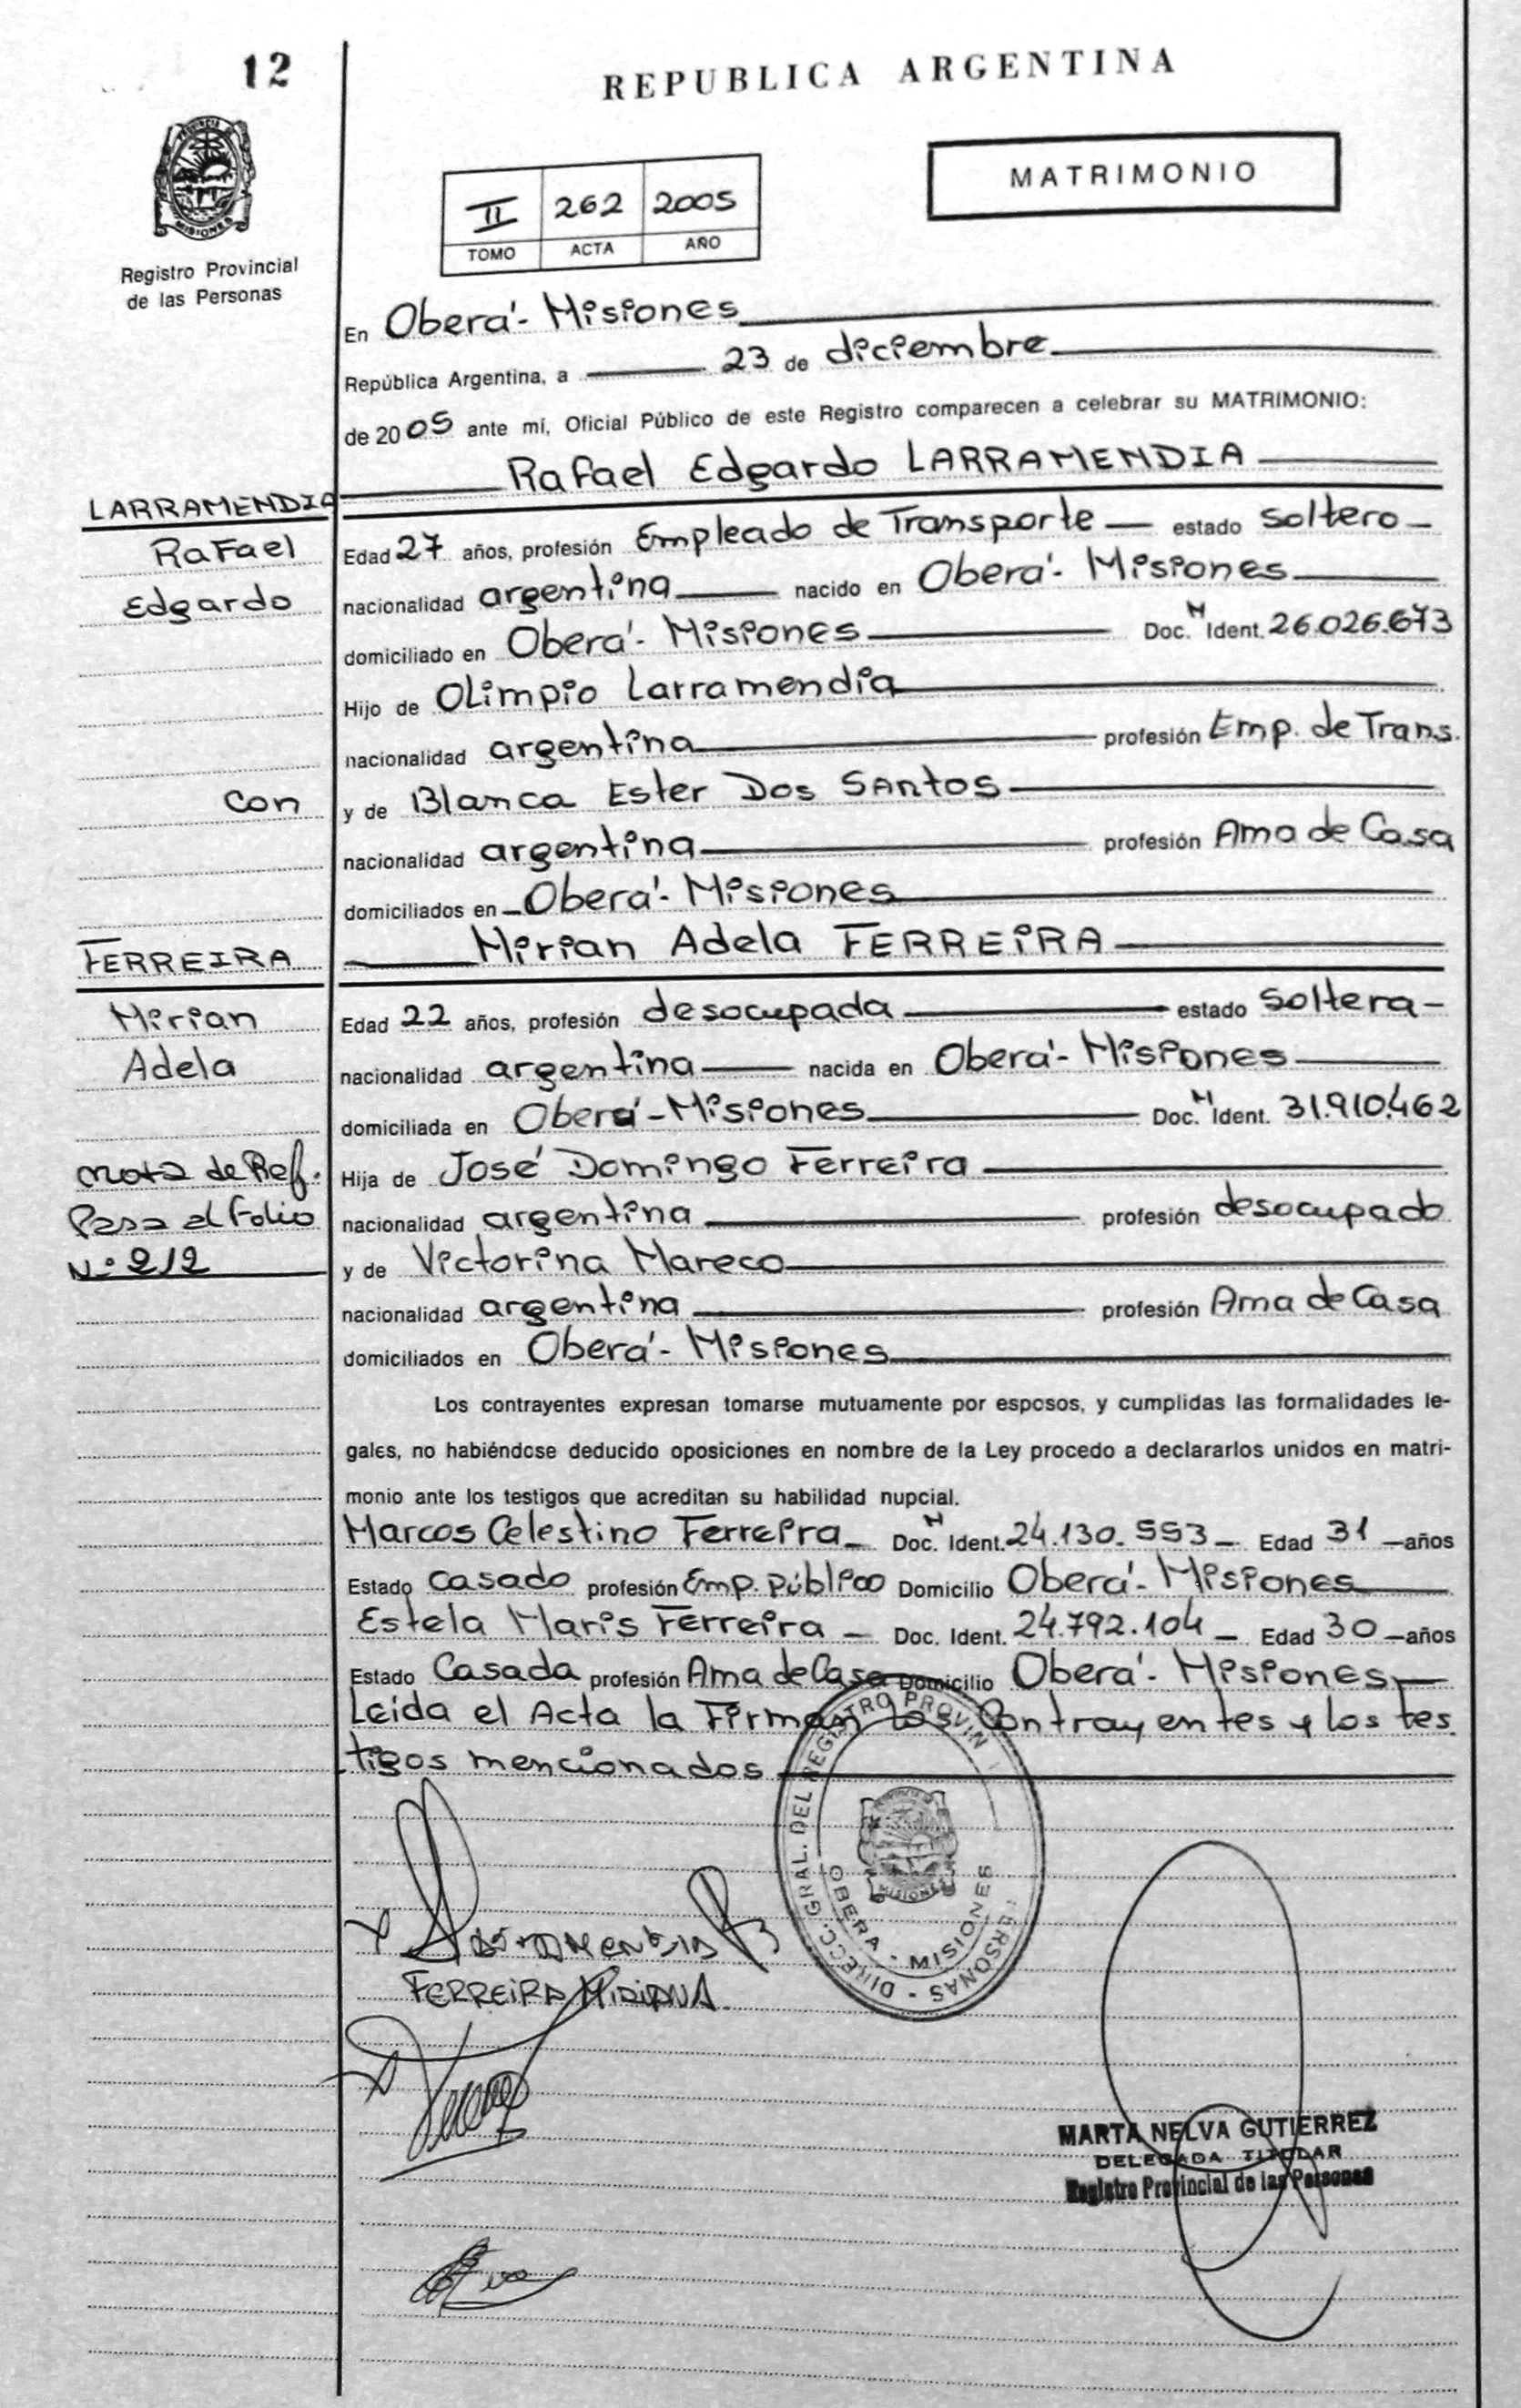 12
REPUBLICA ARGENTINA
MATRIMONIO
II 262 2005
TOMO ACTA AÑO
PROVINCIA D
MISIONES
Registro Provincial
de las Personas
En Oberá - Misiones
República Argentina, a 23 de diciembre
de 2005 ante mí, Oficial Público de este Registro comparecen a celebrar su MATRIMONIO:
Rafael Edgardo LARRAMENDIA
LARRAMENDIA
Rafael
Edgardo
con
Edad 27 años, profesión Empleado de Transporte estado soltero
nacionalidad argentina nacido en Oberá - Misiones
domiciliado en Oberá - Misiones Doc. N Ident. 26.026.673
Hijo de Olimpio Larramendia
nacionalidad argentina profesión Emp. de Trans.
y de Blanca Ester Dos Santos
nacionalidad argentina profesión Ama de Casa
domiciliados en Oberá - Misiones
Mirian Adela FERREIRA
FERREIRA
Mirian
Adela
Nota de Ref.
Pasa al Folio
N° 212
Edad 22 años, profesión desocupada estado soltera
nacionalidad argentina nacida en Oberá - Misiones
domiciliada en Oberá - Misiones Doc. N Ident. 31.910.462
Hija de José Domingo Ferreira
nacionalidad argentina profesión desocupado
y de Victorina Mareco
nacionalidad argentina profesión Ama de Casa
domiciliados en Oberá - Misiones
Los contrayentes expresan tomarse mutuamente por esposos, y cumplidas las formalidades le-
gales, no habiéndose deducido oposiciones en nombre de la Ley procedo a declararlos unidos en matri-
monio ante los testigos que acreditan su habilidad nupcial.
Marcos Celestino Ferreira Doc. N Ident. 24.130.553 Edad 31 años
Estado casado profesión Emp. Público Domicilio Oberá - Misiones
Estela Maris Ferreira Doc. Ident. 24.792.104 Edad 30 años
Estado Casada profesión Ama de Casa Domicilio Oberá - Misiones
Leída el Acta la Firman los Contrayentes y los tes
tigos mencionados
DIRECC. GRAL. DEL REGISTRO PROVIN PERSONAS
OBERA - MISIONES
MISIONES
FERREIRA MIRIAN A.
MARTA NELVA GUTIERREZ
DELEGADA TITULAR
Registro Provincial de las Personas